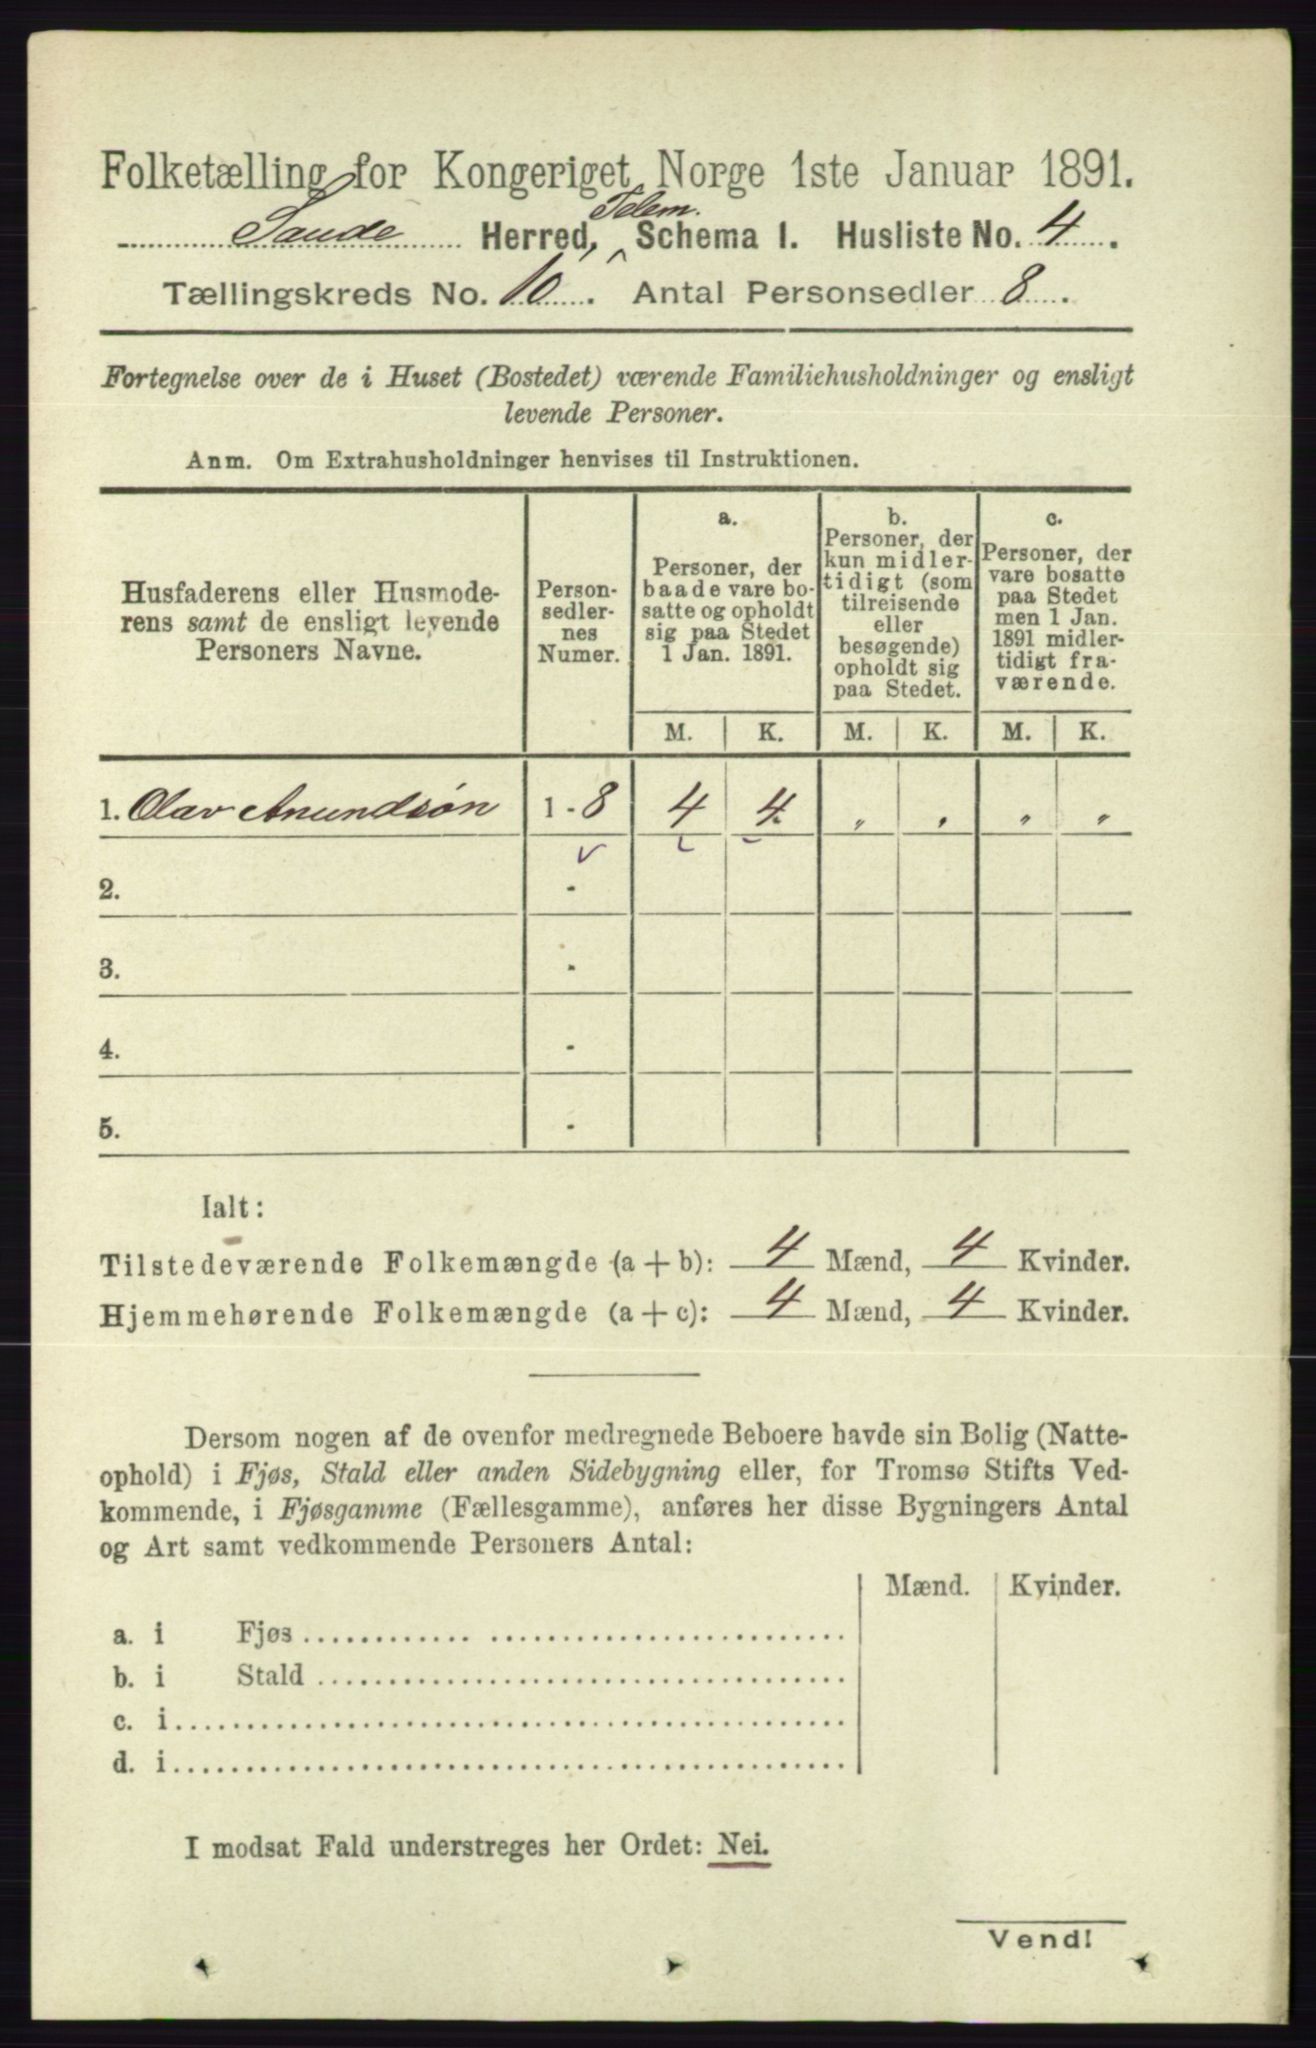 Folketælling for Kongeriget Norge 1ste Januar 1891.
Telem.
Saude Herred, Schema I. Husliste No. 4.
Tællingskreds No. 10. Antal Personsedler 8.
Fortegnelse over de i Huset (Bostedet) værende Familiehusholdninger og ensligt
levende Personer.
Anm. Om Extrahusholdninger henvises til Instruktionen.
Husfaderens eller Husmode-
rens samt de ensligt levende
Personers Navne.
Person-
sedler-
nes
Numer.
a.
Personer, der
baade vare bo-
satte og opholdt
sig paa Stedet
1 Jan. 1891.
b.
Personer, der
kun midler-
tidigt (som
tilreisende
eller
besøgende)
opholdt sig
paa Stedet.
c.
Personer, der
vare bosatte
paa Stedet
men 1 Jan.
1891 midler-
tidigt fra-
værende.
M. K. M. K. M. K.
1. Olav Anundsøn 1 - 8 4 4. " " " "
2. -
3. -
4. -
5. -
Ialt:
Tilstedeværende Folkemængde (a + b): 4 Mænd, 4 Kvinder.
Hjemmehørende Folkemængde (a + c): 4 Mænd, 4 Kvinder.
Dersom nogen af de ovenfor medregnede Beboere havde sin Bolig (Natte-
ophold) i Fjøs, Stald eller anden Sidebygning eller, for Tromsø Stifts Ved-
kommende, i Fjøsgamme (Fællesgamme), anføres her disse Bygningers Antal
og Art samt vedkommende Personers Antal:
Mænd. Kvinder.
a. i Fjøs
b. i Stald
c. i
d. i
I modsat Fald understreges her Ordet: Nei.
Vend!